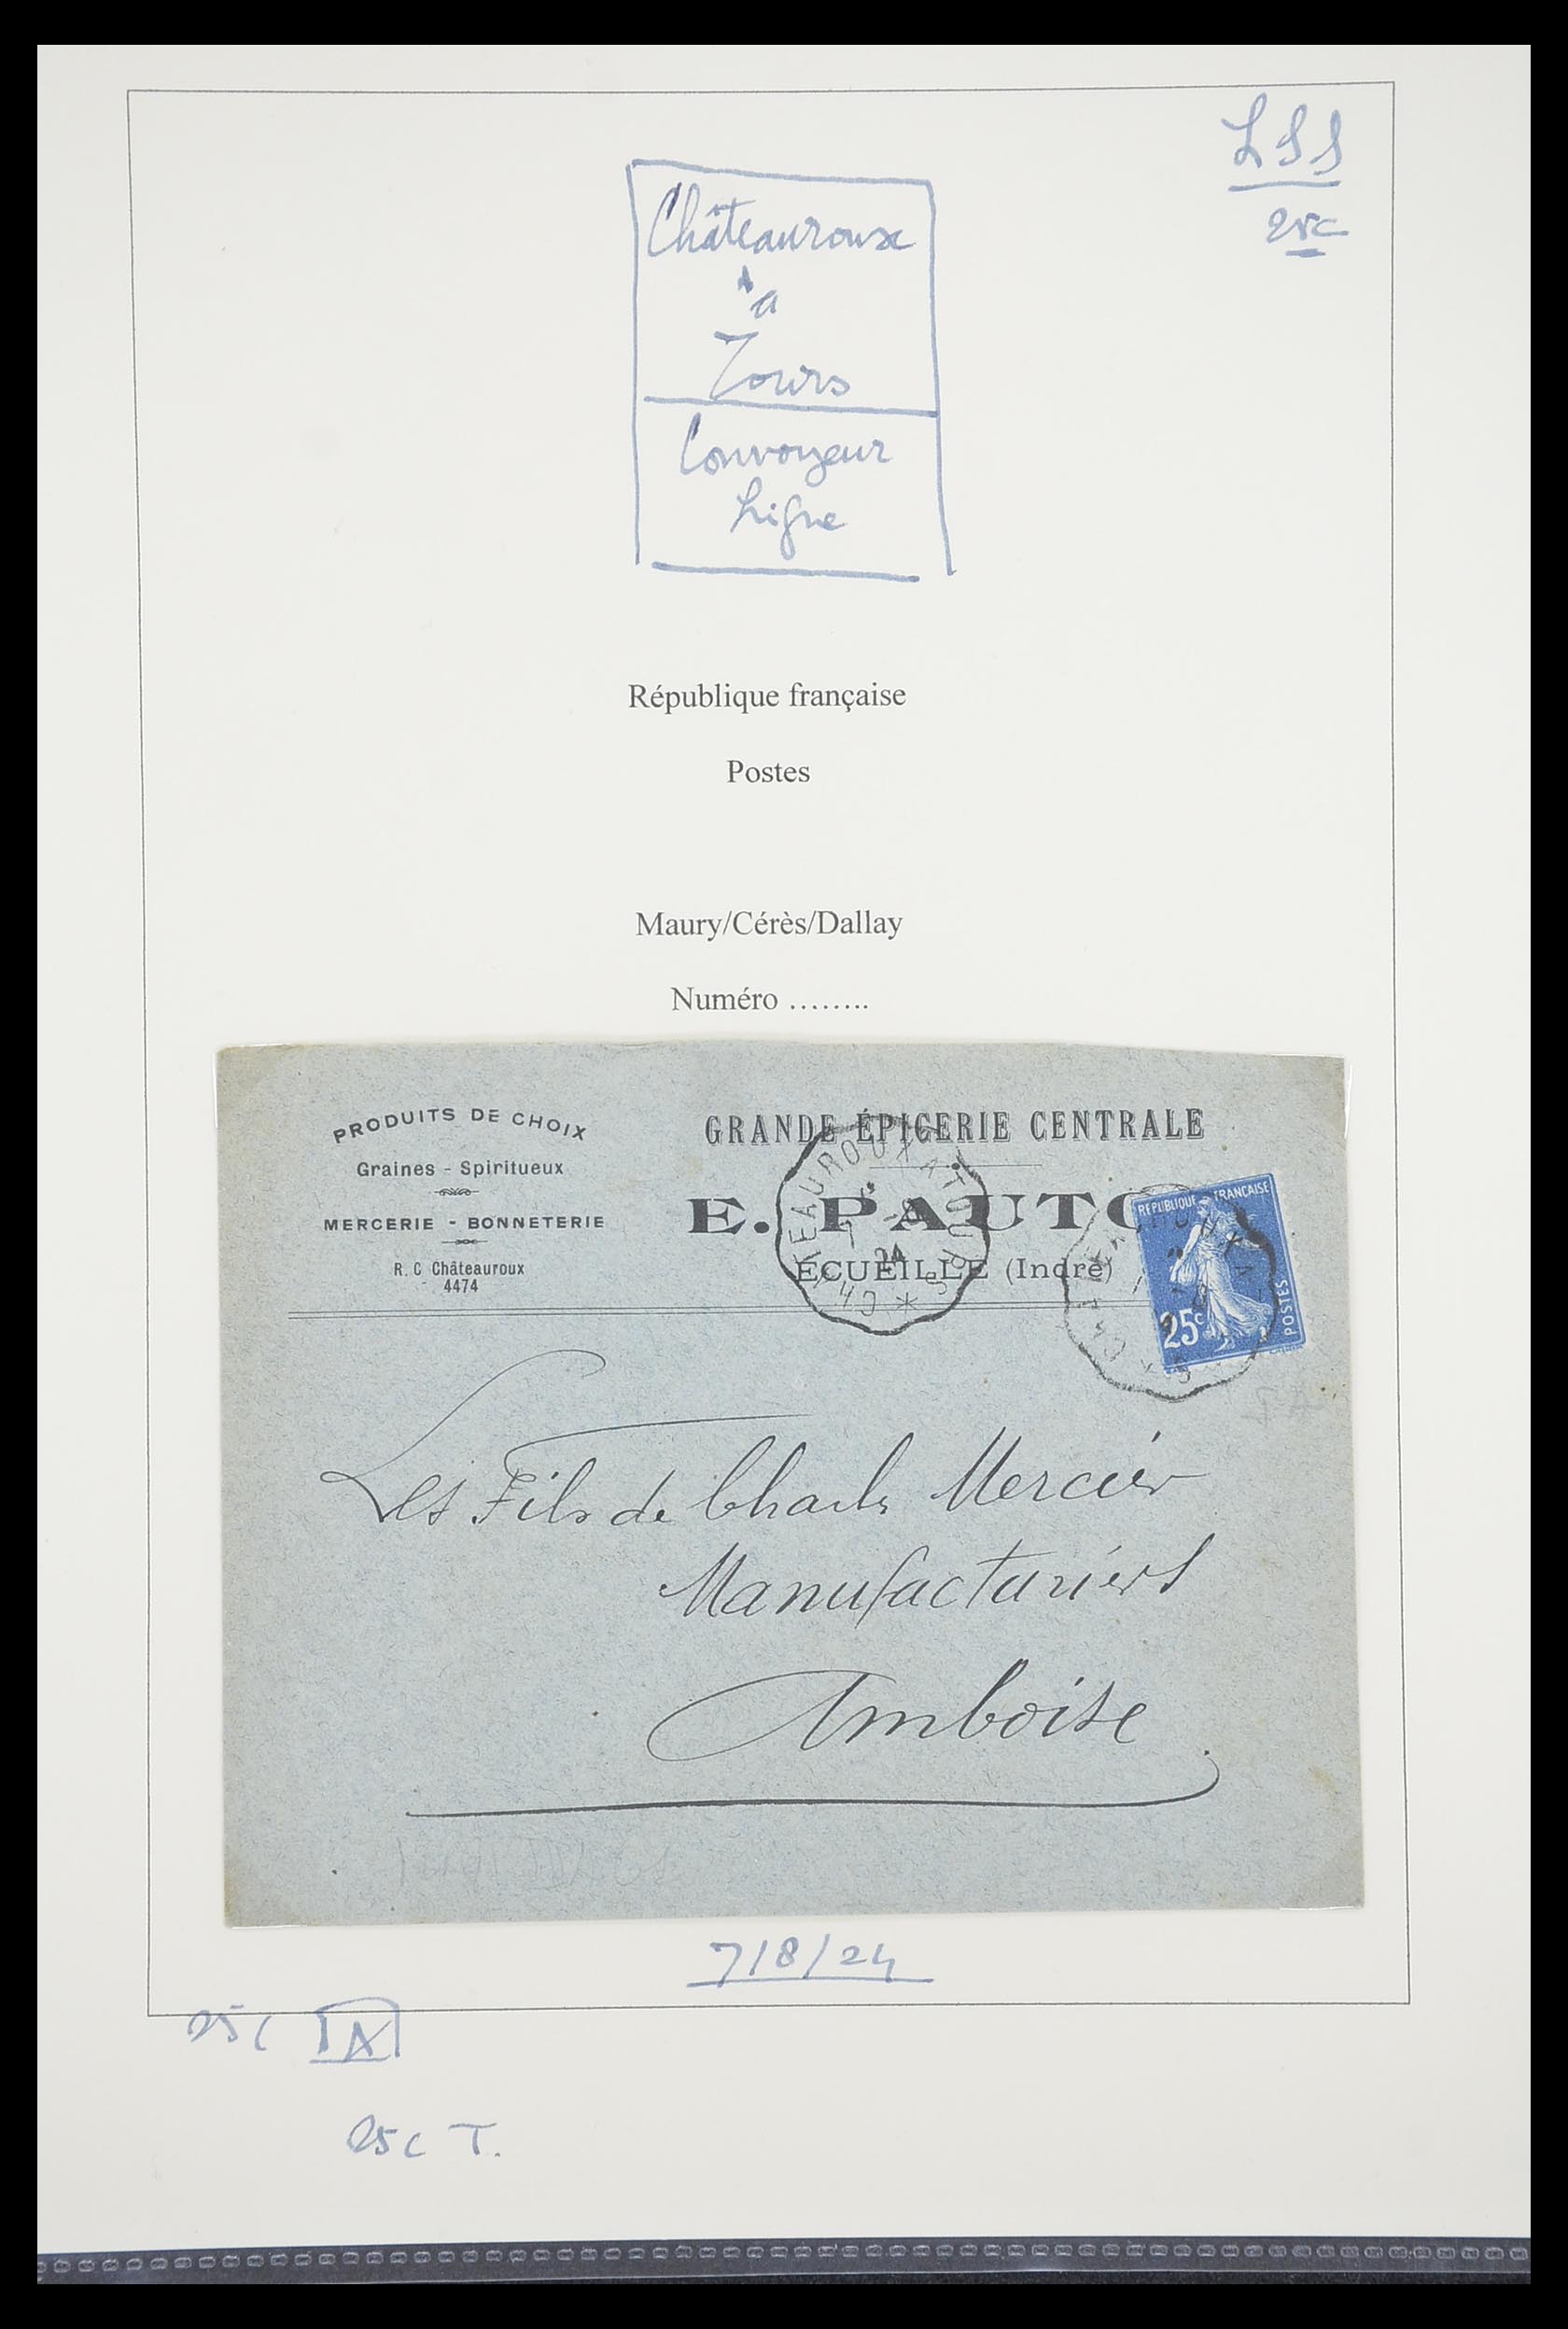 LSS
25c
Châteauroux
à
Tours
Convoyeur
Ligne
République française
Postes
Maury/Cérès/Dallay
Numéro ……..
PRODUITS DE CHOIX
Graines - Spiritueux
MERCERIE - BONNETERIE
R. C Châteauroux
4474
GRANDE ÉPICERIE CENTRALE
E. PAUT
ECUEILLÉ (Indre)
CHATEAUROUX A TOURS *
7 -8
24
REPUBLIQUE FRANÇAISE
25c
POSTES
Les Fils de Charles Mercier
Manufacturiers
Amboise
7/8/24
25c A
25c T.